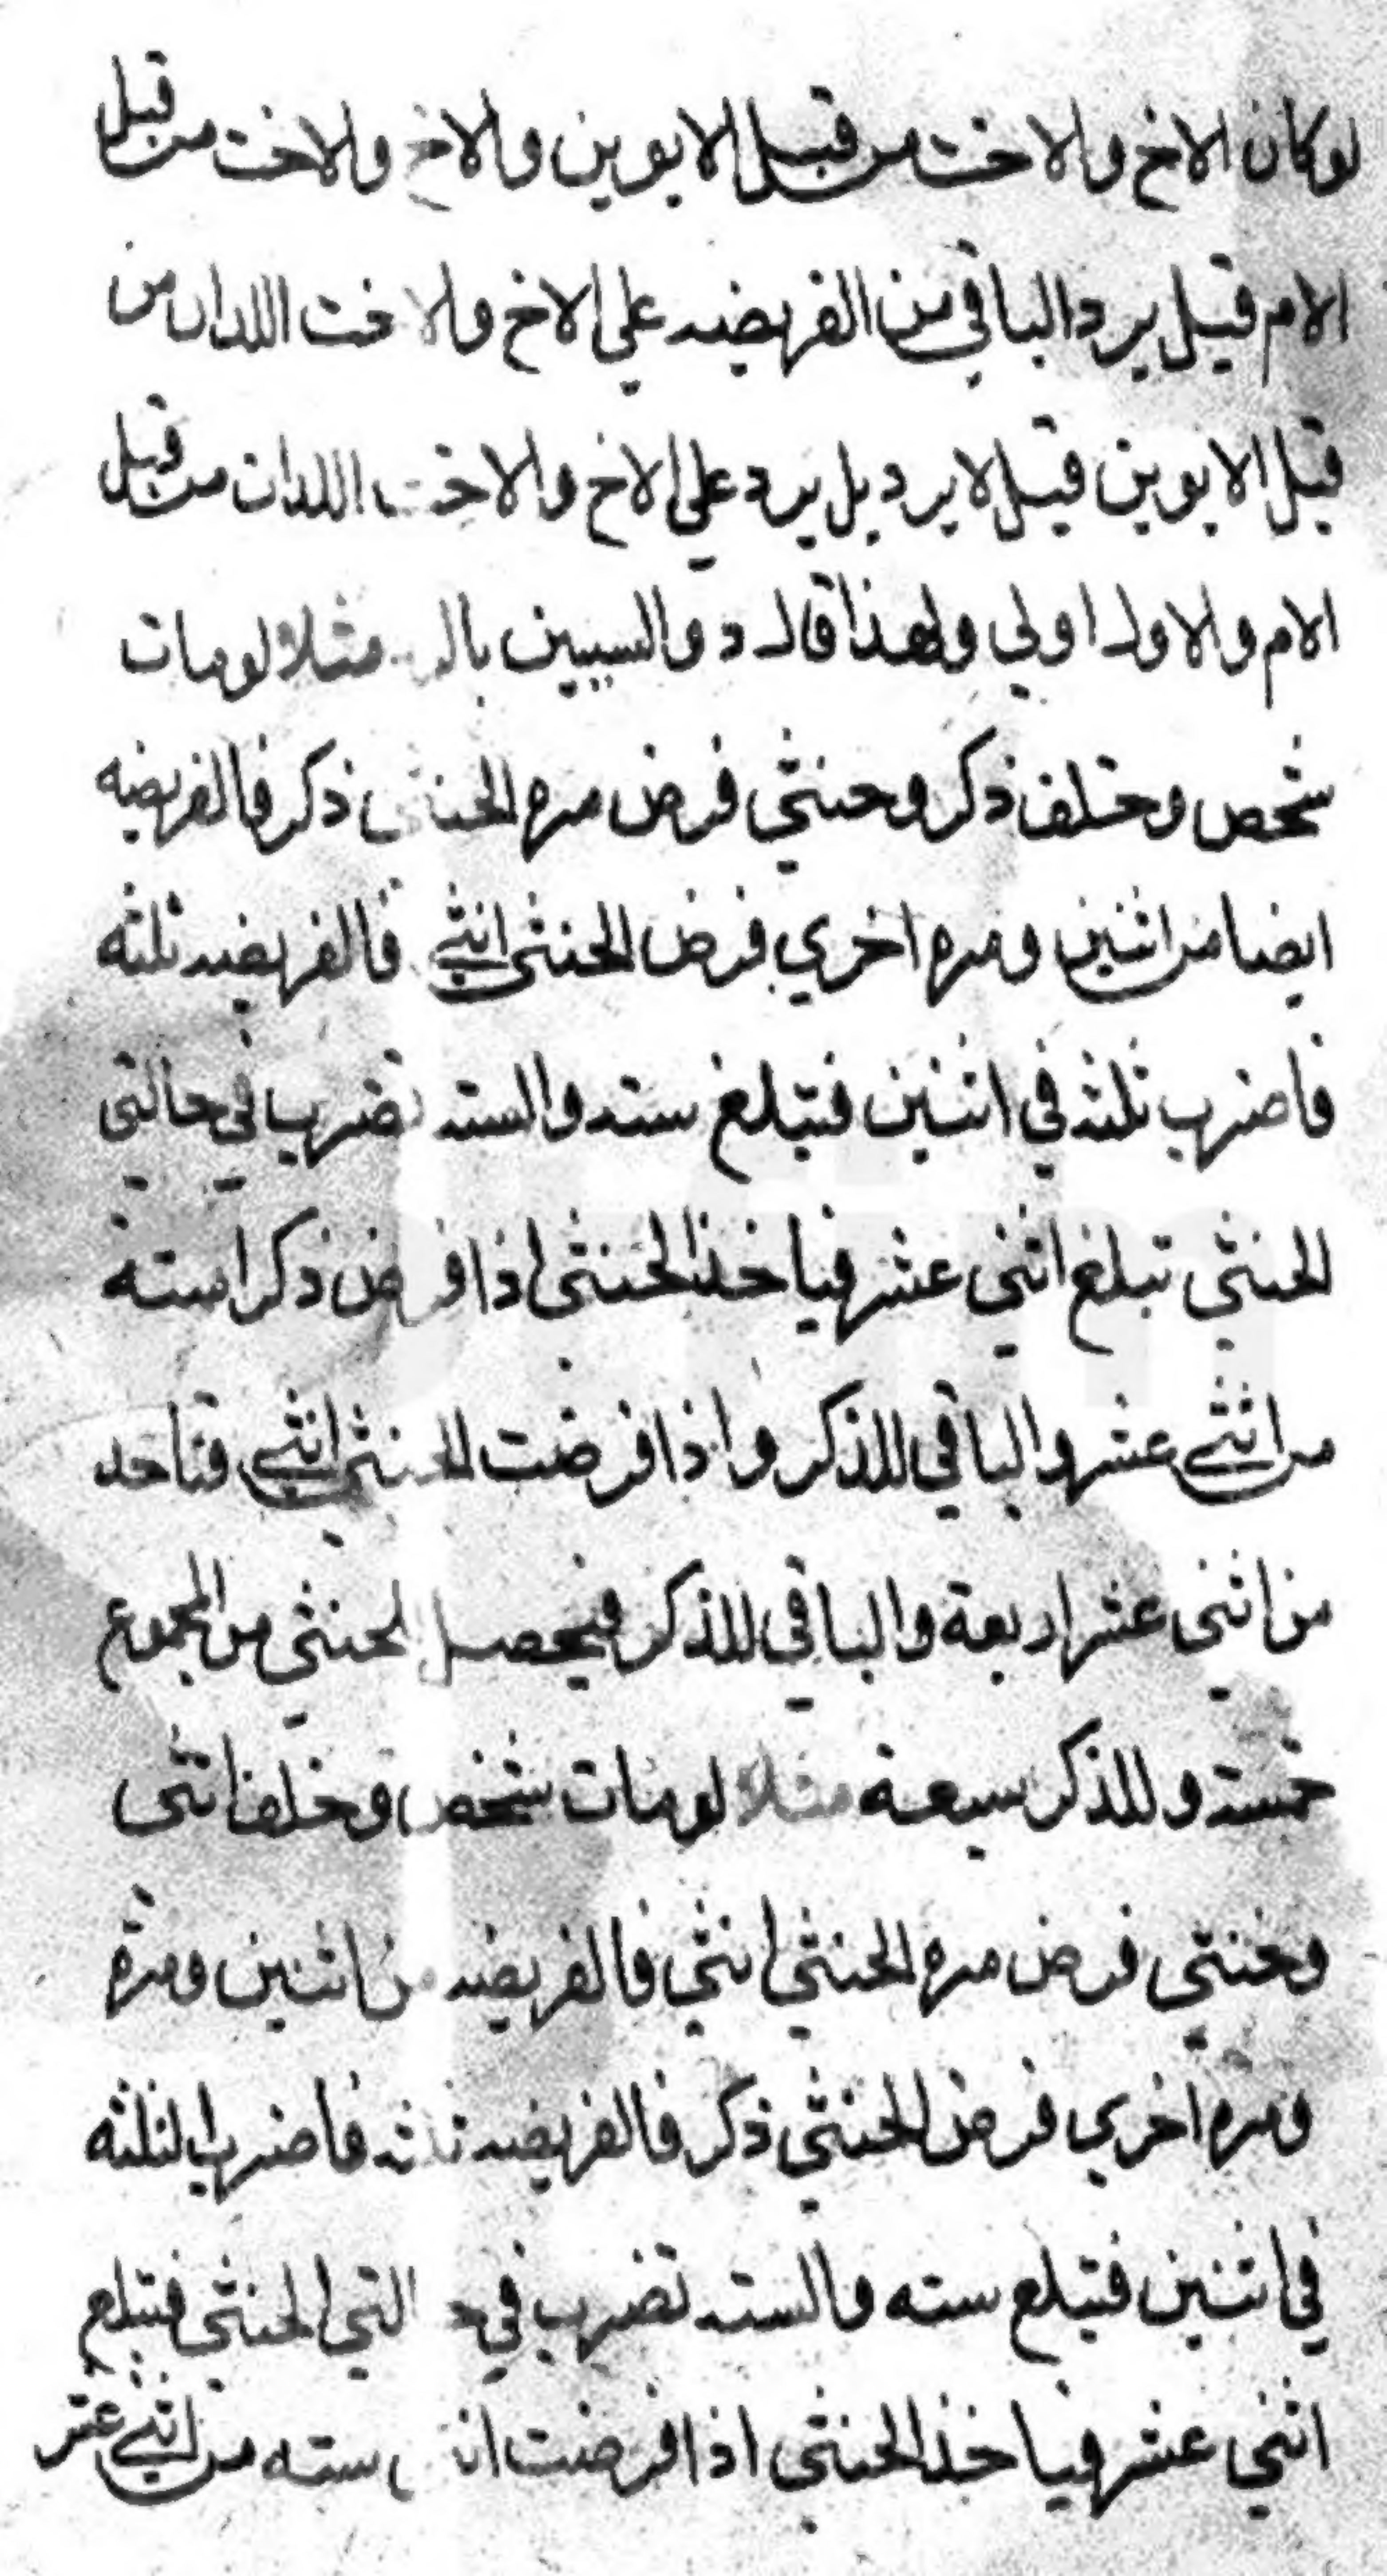 لوكان الاخ والاخت من قبل الابوين والاخ والاخت من قبل
الام قيل يرد الباقي من الفريضه علي الاخ والاخت اللدان من
قبل الابوين قيل لا يرد بل يرد علي الاخ والاخت اللدان من قبل
الام والاول اولي ولهذا قال ذو السببين مثلا لومات
شخص وخلف ذكر وخنثي فرض مره الخنثي ذكر فالفريضه
ايضا من اثنين ومره اخري فرض الخنثي انثي فالفريضه ثلثه
فاضرب ثلثه في اثنين فتبلغ سته والسته تضرب في حالتي
الخنثي تبلغ اثني عشر فياخذ الخنثي اذا فرض ذكرا سته
من اثني عشر والباقي للذكر واذا فرضت الخنثي انثي فتاخد
من اثني عشر اربعة والباقي للذكر فيحصل لخنثي من المجموع
خمسة وللذكر سبعة مثلا لومات شخص وخلف انثى
وخنثي فرض مره الخنثي انثي فالفريضه من اثنين ومره
ومره اخري فرض الخنثي ذكر فالفريضه ثلثه فاضرب الثلثه
في اثنين فتبلع سته والسته تضرب في حالتي الخنثي فتبلع
اثني عشر فياخذ الخنثي اذا فرضت انثي سته من اثني عشر